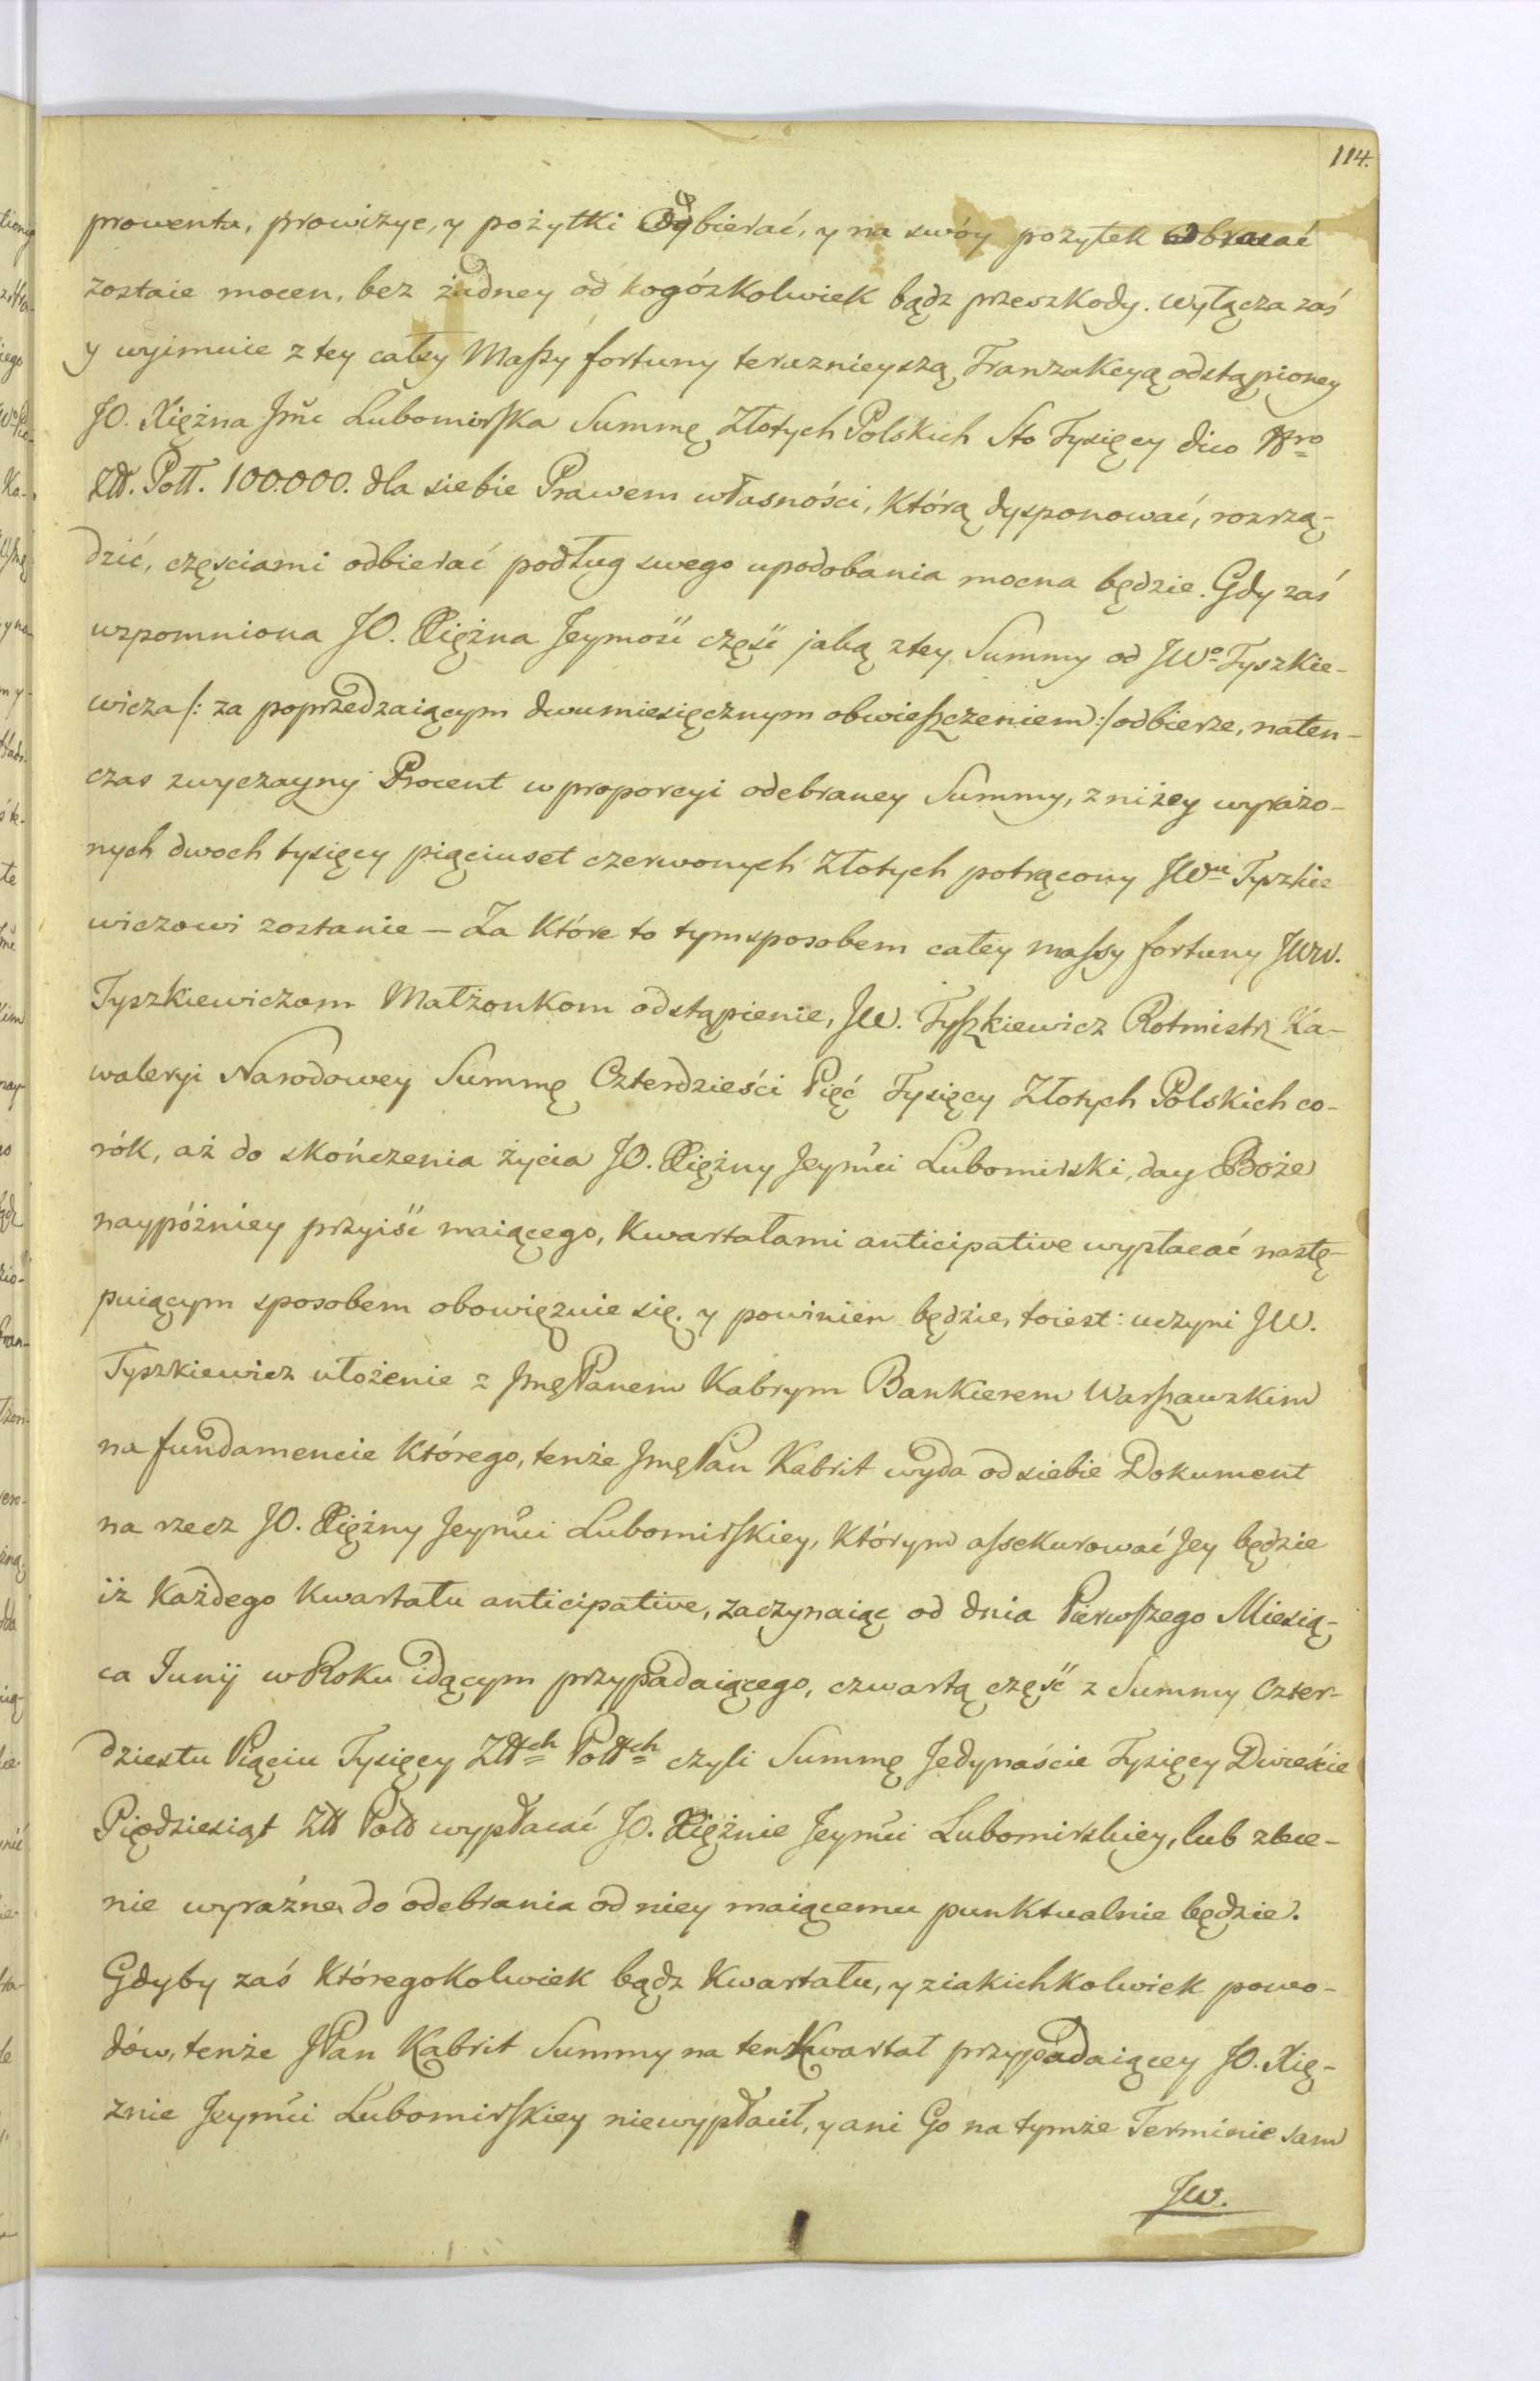 114.
prowenta, prowizye, y pożytki odbierać, y na swóy pożytek obracać
zostaie mocen, bez żadney od kogózkolwiek bądz przeszkody. wyłącza zaś
y wyimuie z tey całey Massy fortuny teraznieyszą Tranzakcyą odstąpioney
JO. Xiężna Jmc Lubomirska Summę Złotych Polskich Sto Tysięcy dico Nro
Złł. Poll. 100.000. dla siebie Prawem własności, którą dysponować, rozrzą-
dzić, częściami odbierać podług swego upodobania mocna będzie. Gdy zaś
wzpomniona JO. Xiężna Jeymość część jaką z tey Summy od JWo Tyszkie-
wicza /: za poprzedzaiącym dwumiesięcznym obwieszczeniem :/ odbierze, naten-
czas zwyczayny Procent w proporcyi odebraney Summy, z niżey wyrażo-
nych dwoch tysięcy pięciuset czerwonych Złotych potrącony JWu Tyszkie
wiczowi zostanie — Za które to tym sposobem całey massy fortuny JWW.
Tyszkiewiczom Małżonkom odstąpienie, JW. Tyszkiewicz Rotmistrz Ka-
waleryi Narodowey Summę Czterdzieści Pięć Tysięcy Złotych Polskich co-
rók, aż do skończenia życia JO. Xiężny Jeymci Lubomirski, day Boże
naypóżniey przyiść maiącego, Kwartałami anticipative wypłacać nastę-
puiącym sposobem obowięzuie się, y powinien będzie, toiest: uczyni JW.
Tyszkiewicz ułożenie z Jmę Panem Kabrym Bankierem Warszawzkim
na fundamencie którego, tenże Jmę Pan Kabrit wyda od siebie Dokument
na rzecz JO. Xiężny Jeymci Lubomirskiey, którym assekurować Jey będzie
iż każdego Kwartału anticipative, zaczynaiąc od dnia Pierwszego Miesią-
ca Junij w Roku idącym przypadaiącego, czwartą część z Summy Czter-
dziestu Pięciu Tysięcy Złłch Pollch czyli Summę Jedynaście Tysięcy Dwieście
Pięćdziesiąt Złł Poll wypłacać JO. Xiężnie Jeymci Lubomirskiey, lub zlece-
nie wyraźne do odebrania od niey maiącemu punktualnie będzie.
Gdyby zaś któregokolwiek bądz Kwartału, y z iakichkolwiek powo-
dów, tenże JPan Kabrit Summy na ten Kwartał przypadaiącey JO. Xię-
żnie Jeymci Lubomirskiey niewypłacił, y ani Go na tymże Terminie sam
JW.